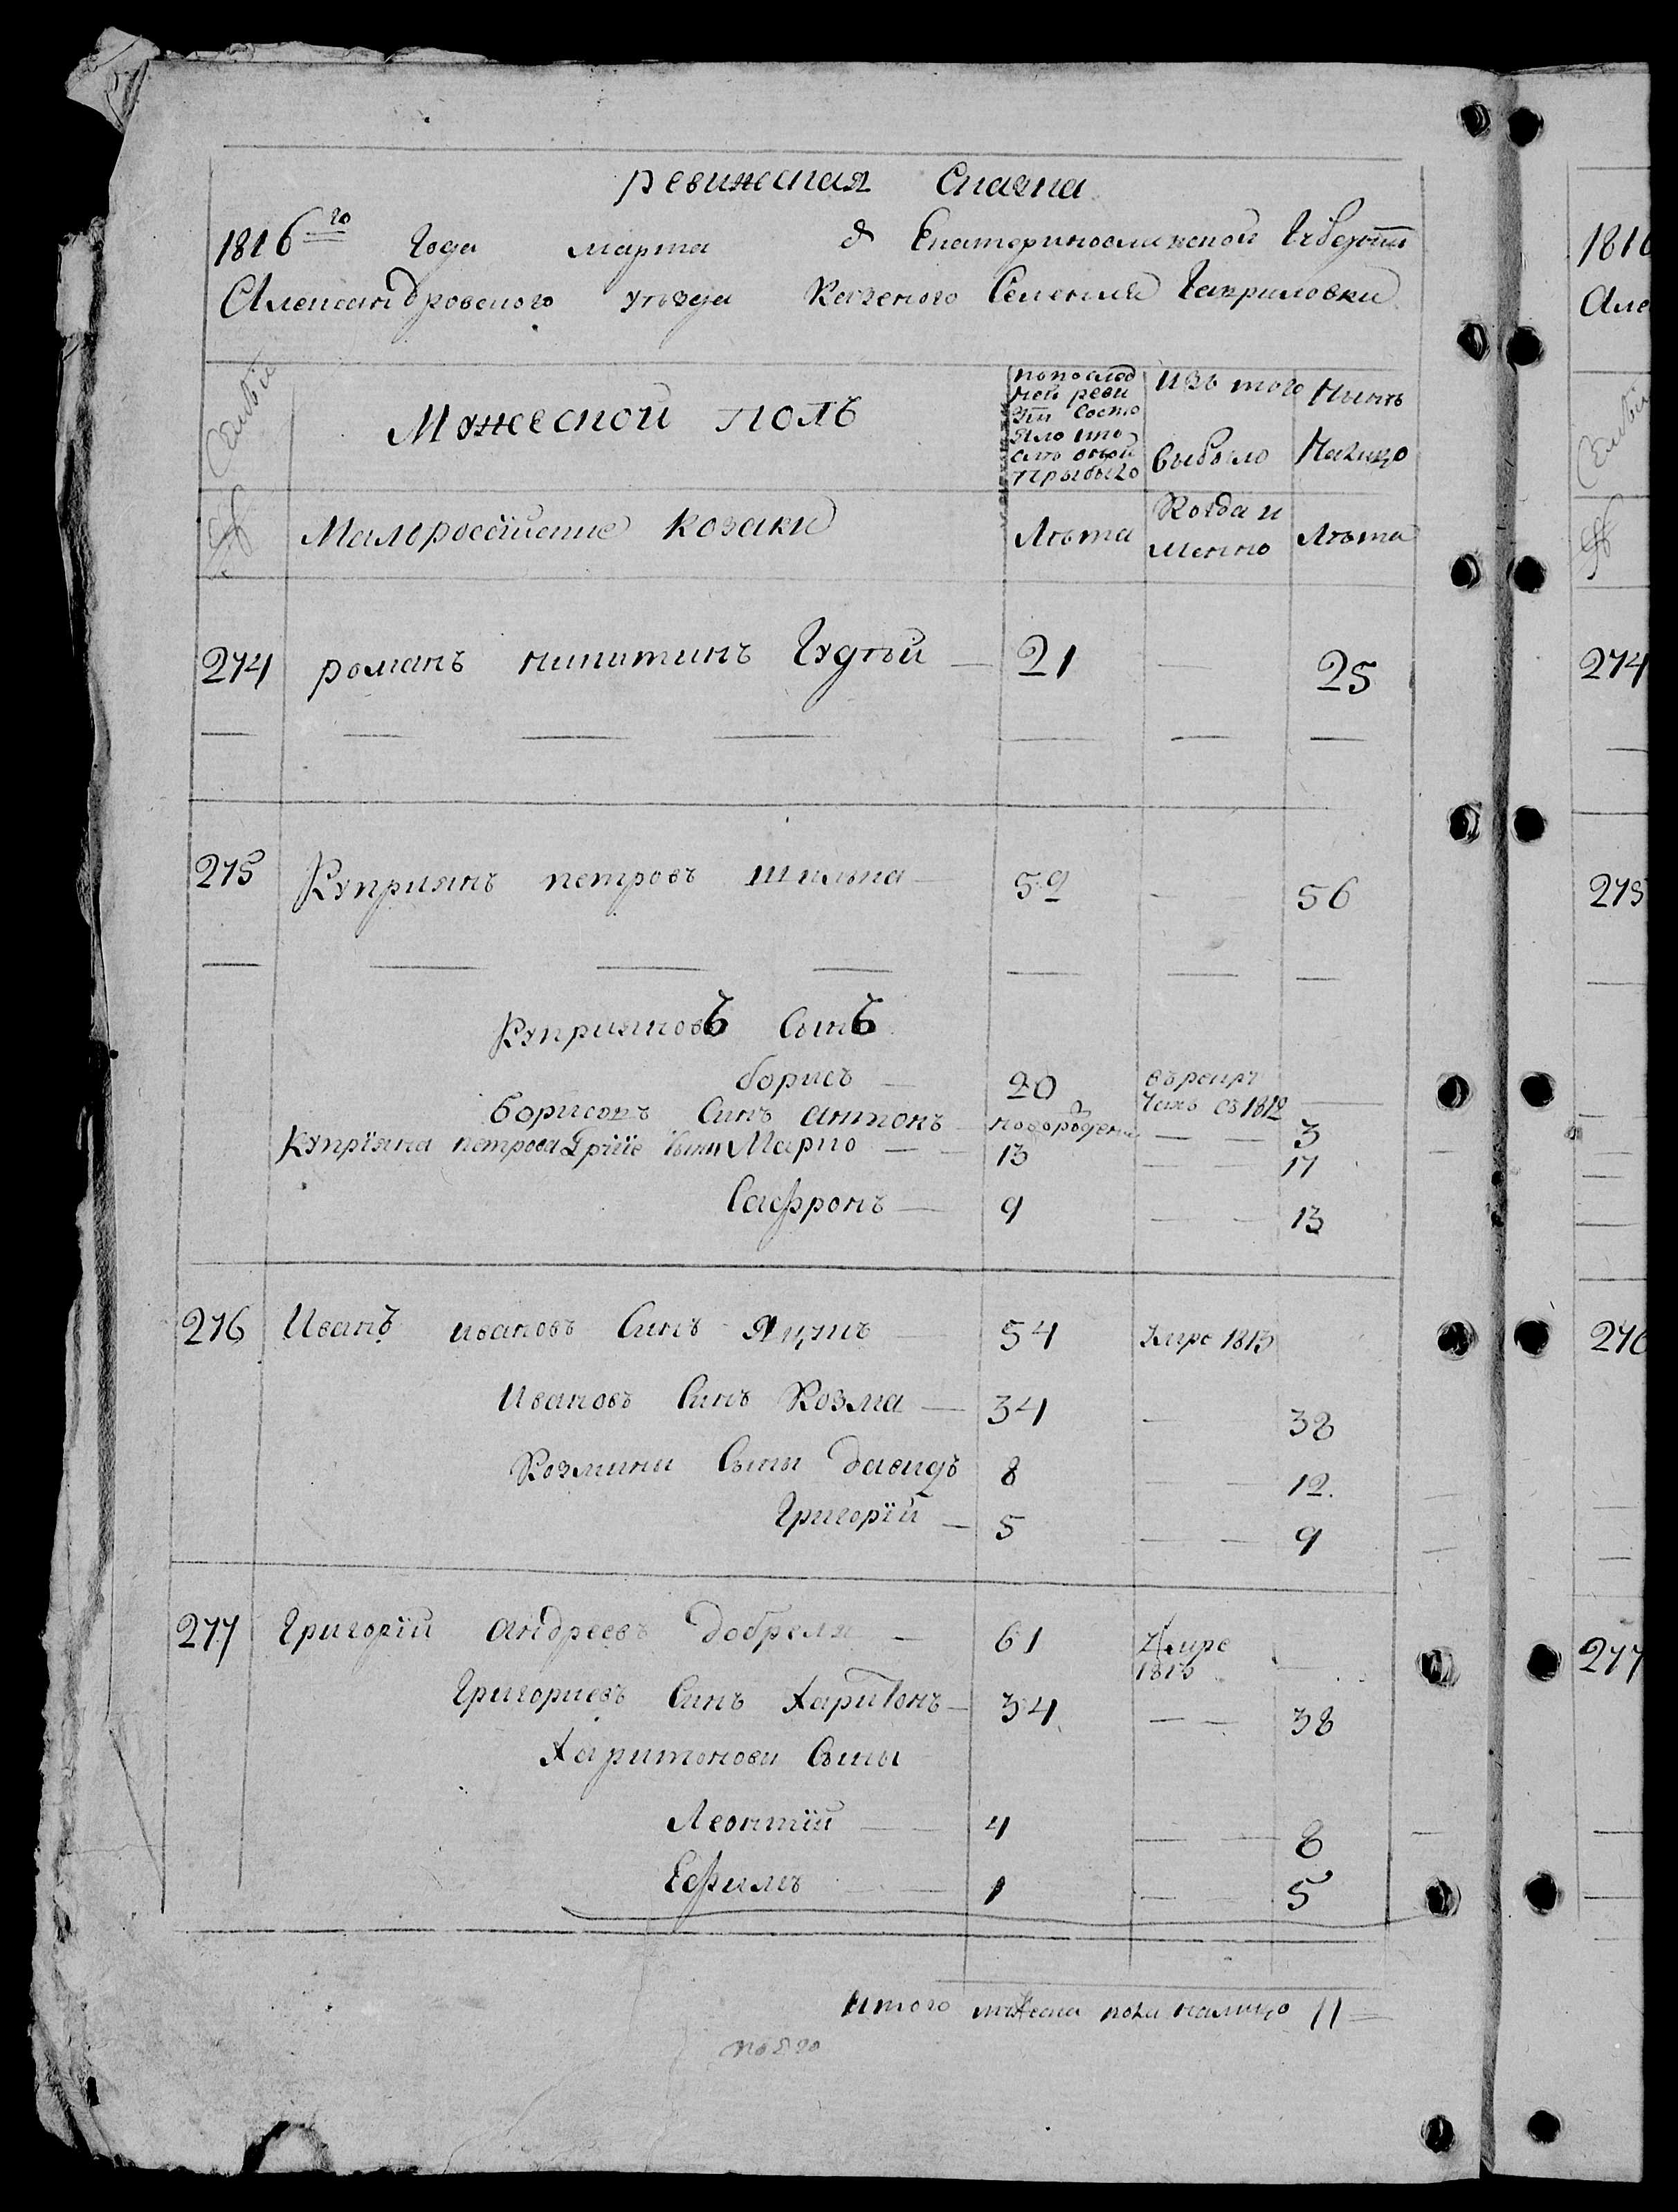 ревижская Сказка
1816го Года марта д Екатеринославской Губернии
Александровского уезда Казеного Селения Гавриловки
Семьи
Мужеской полъ
попослед
ней реви
зіи Состо
яло или
после оной
прибыло
Изъ того
выбыло
Нынѣ
Налицо
Малоросѣйские Козаки
Лѣта
Когда и
менно
Лѣта
274 романъ никитинъ Гудтьй — 21 — 25
275 Куприянъ петровъ шилька — 59 — 56
Куприяновъ Синъ
борисъ — 20 въ рекру
тахъ съ 1812 —
борисовъ Синъ антонъ — — 3
Купріяна петрова Марко — 13 — 17
Сафронъ — 9 — 13
276 Иванъ ивановъ Синъ Яцукъ 54 Умре 1813
Ивановъ Синъ Козма — 34 — 38
Козмини Сыны давидъ 8 — 12.
Григорїй — 5 — 9
277 Григорїй андреевъ добреля — 61 Умре
1813 —
Григориевъ Синъ Харитонъ — 34 — 38
Харитонови Сыны
Леонтїй — 4 — 8
Ефимъ — 1 — 5
Итого мужеска пола налицо 11
1816
Але
Семьи
274
275
276
277